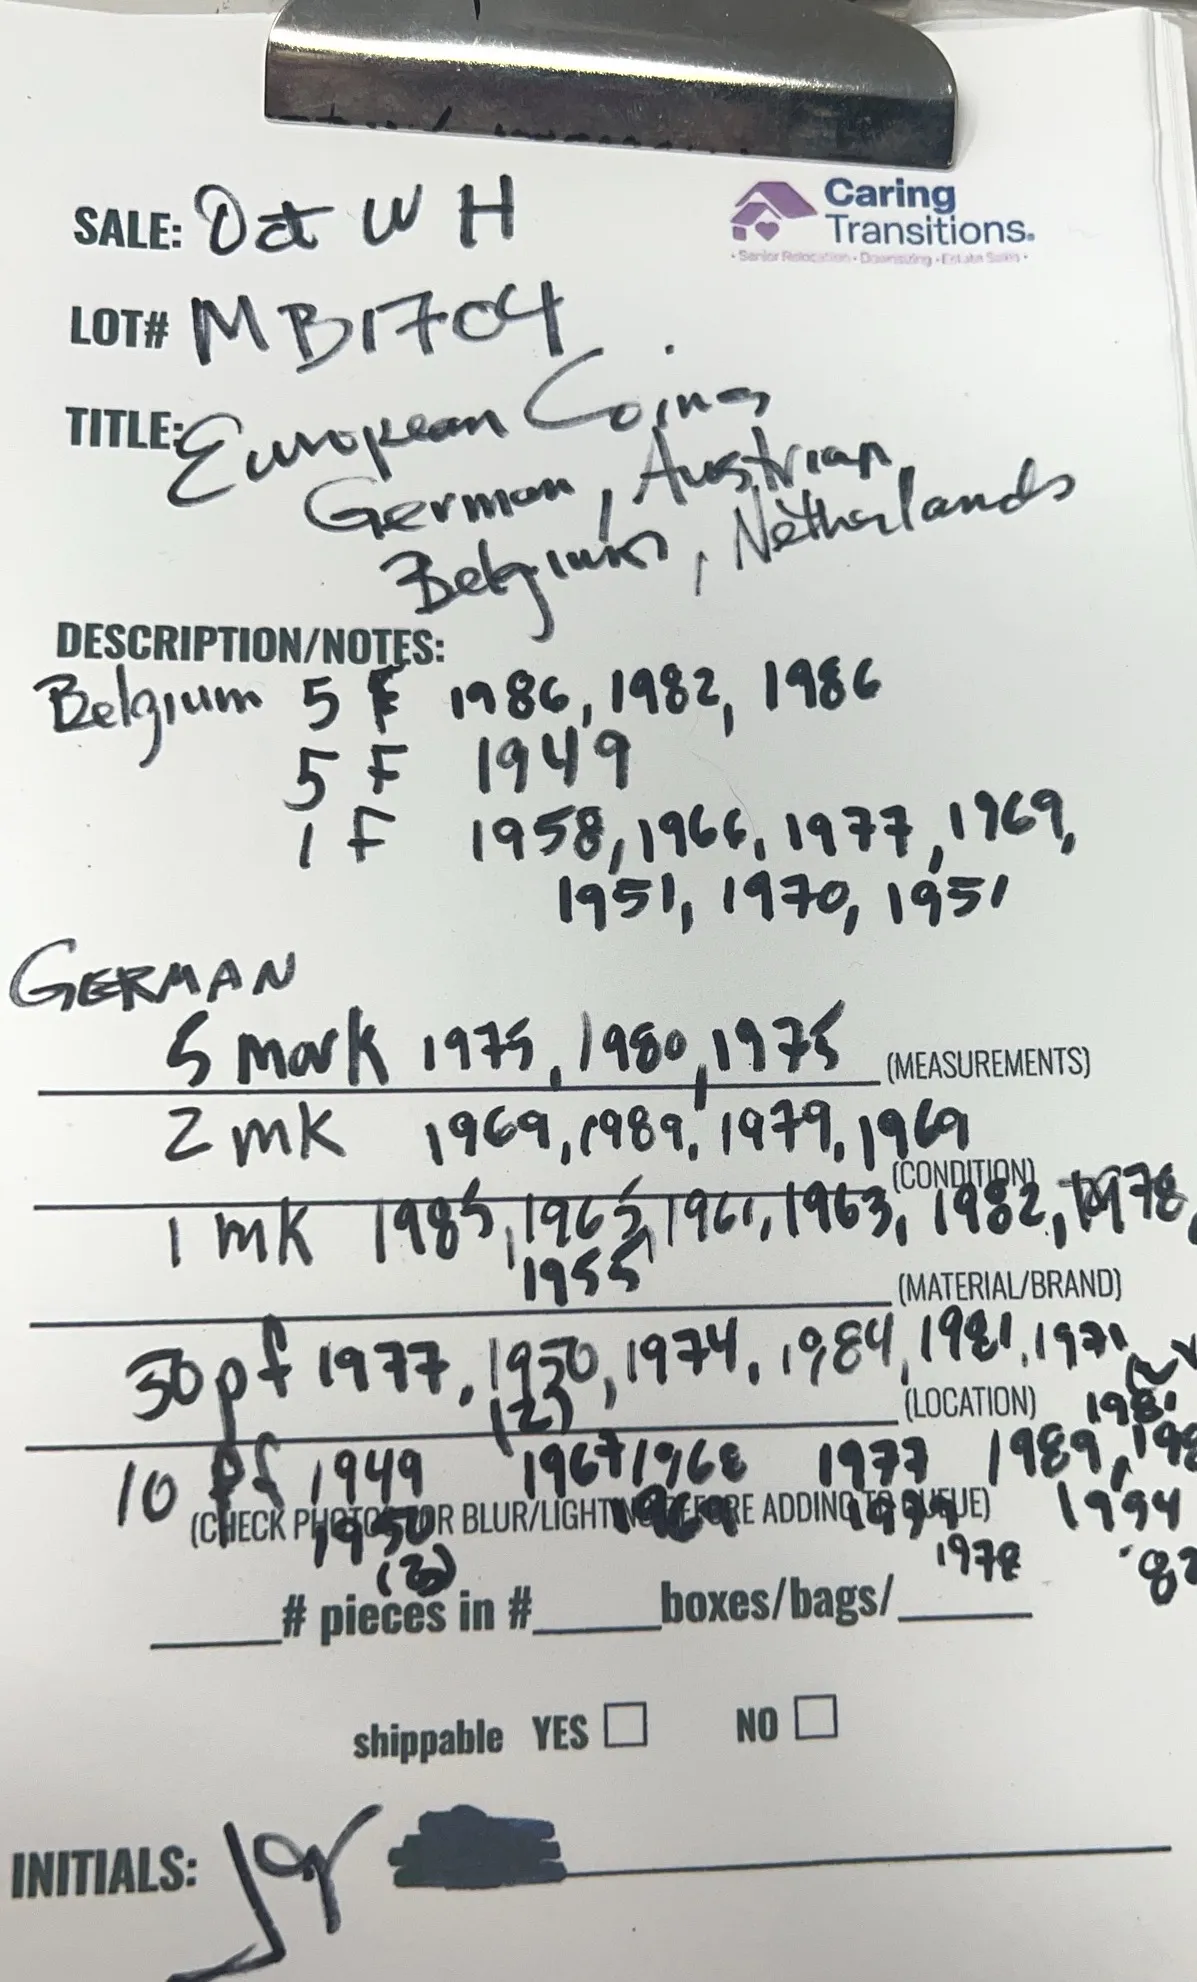 Caring
Transitions.
• Senior Relocation • Downsizing • Estate Sales •
SALE: Oct W H
LOT# MB1704
TITLE: European Coins
German, Austrian,
Belgium, Netherlands
DESCRIPTION/NOTES:
Belgium 5 F 1986, 1982, 1986
5 F 1949
1 F 1958, 1966, 1977, 1969,
1951, 1970, 1951
GERMAN
5 mark 1975, 1980, 1975
(MEASUREMENTS)
2 mk 1969, 1989, 1979, 1969
(CONDITION)
1 mk 1985, 1965, 1961, 1963, 1982, 1978,
1955
(MATERIAL/BRAND)
50 pf 1977, 1950, 1974, 1984, 1981, 1971
(2)
(LOCATION) 1981
10 pf 1949 1967 1968 1977 1989, 198
(CHECK PHOTOS FOR BLUR/LIGHTING BEFORE ADDING TO QUEUE)
1950 1969 1979 1994
(3) 1978 '82
# pieces in # boxes/bags/
shippable YES NO
INITIALS: